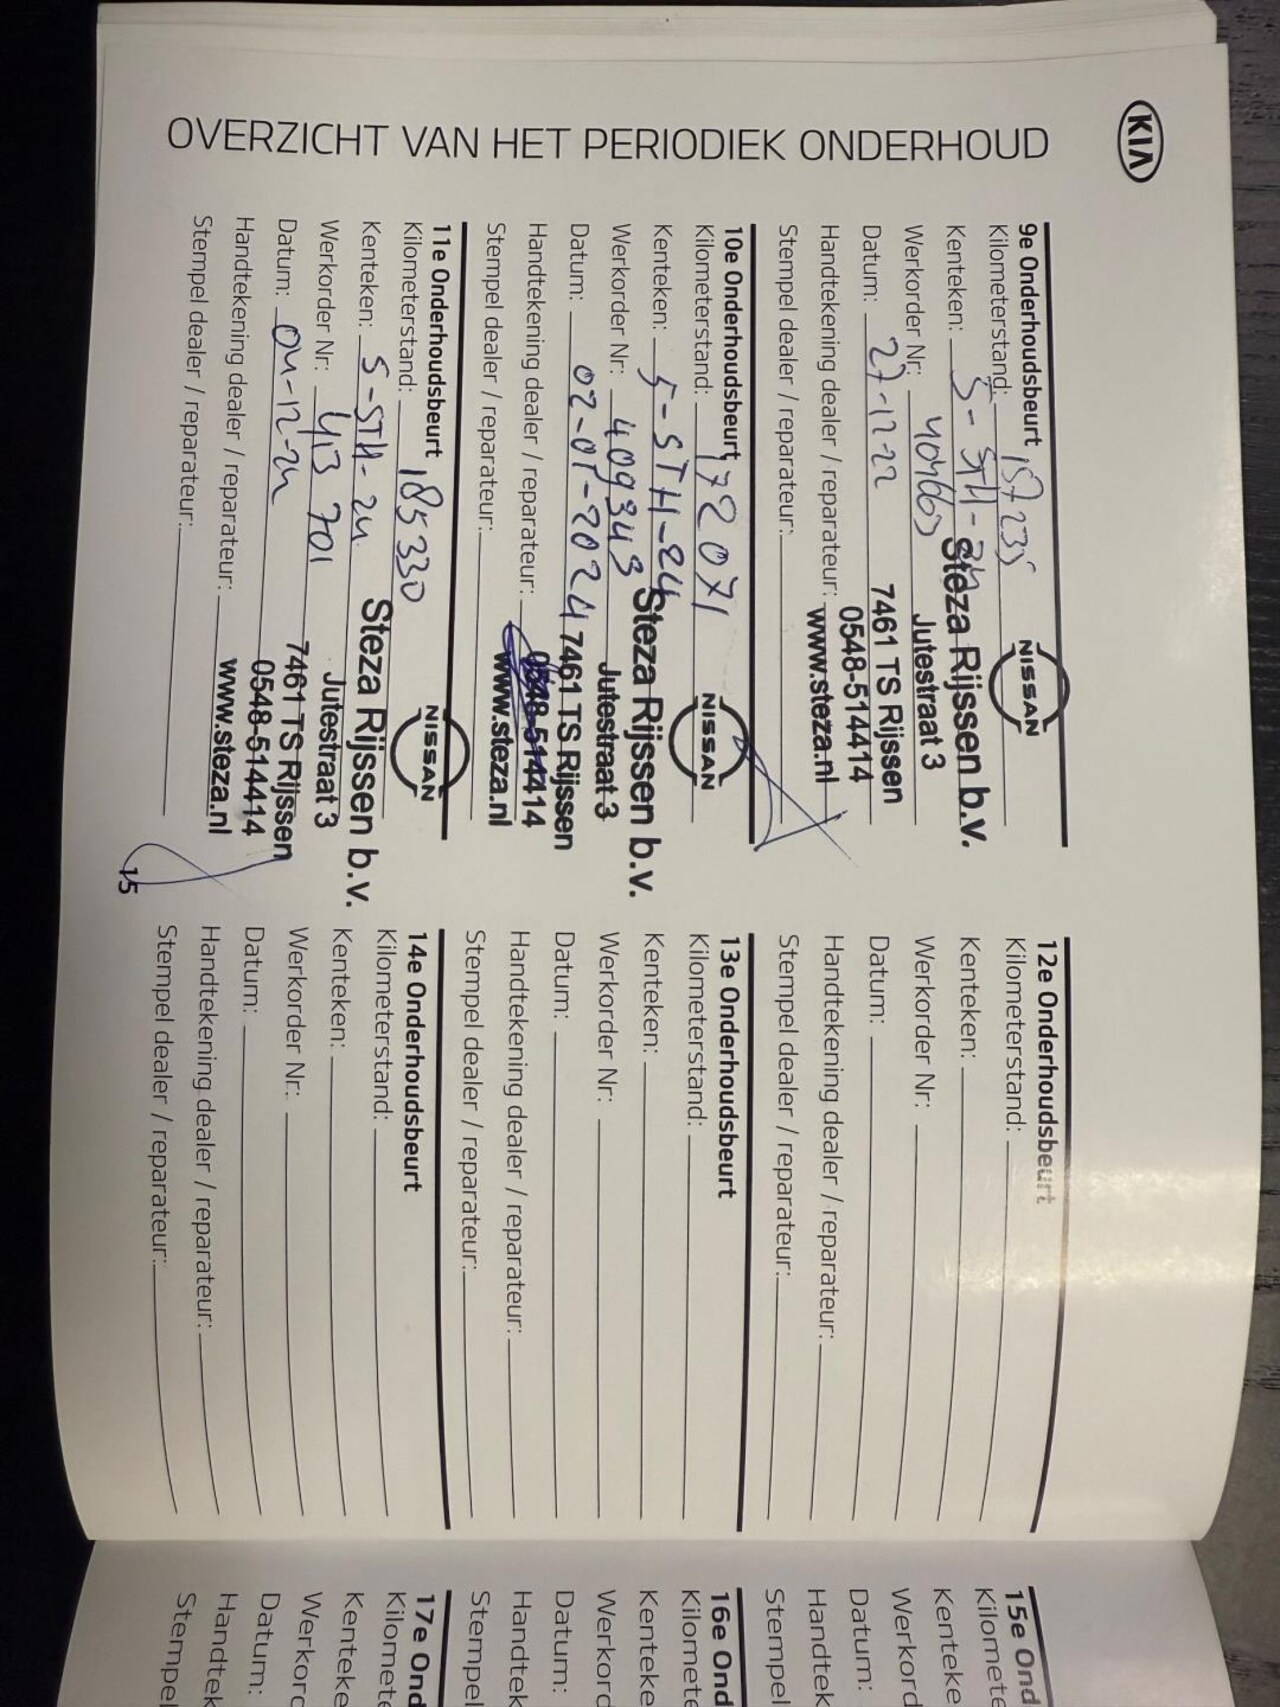 KIA
OVERZICHT VAN HET PERIODIEK ONDERHOUD
9e Onderhoudsbeurt
Kilometerstand: 157235
Kenteken: 5-STH-24
Werkorder Nr:
Datum: 27-12-22
Handtekening dealer / reparateur:
Stempel dealer / reparateur:
NISSAN
Steza Rijssen b.v.
Jutestraat 3
7461 TS Rijssen
0548-514414
www.steza.nl
10e Onderhoudsbeurt
Kilometerstand: 172071
Kenteken: 5-STH-24
Werkorder Nr: 409343
Datum: 02-01-2024
Handtekening dealer / reparateur:
Stempel dealer / reparateur:
NISSAN
Steza Rijssen b.v.
Jutestraat 3
7461 TS Rijssen
0548-514414
www.steza.nl
11e Onderhoudsbeurt
Kilometerstand: 185330
Kenteken: 5-STH-24
Werkorder Nr: 413701
Datum: 04-12-24
Handtekening dealer / reparateur:
Stempel dealer / reparateur:
NISSAN
Steza Rijssen b.v.
Jutestraat 3
7461 TS Rijssen
0548-514414
www.steza.nl
15
12e Onderhoudsbeurt
Kilometerstand:
Kenteken:
Werkorder Nr:
Datum:
Handtekening dealer / reparateur:
Stempel dealer / reparateur:
13e Onderhoudsbeurt
Kilometerstand:
Kenteken:
Werkorder Nr:
Datum:
Handtekening dealer / reparateur:
Stempel dealer / reparateur:
14e Onderhoudsbeurt
Kilometerstand:
Kenteken:
Werkorder Nr:
Datum:
Handtekening dealer / reparateur:
Stempel dealer / reparateur:
15e Ond
Kilomete
Kenteke
Werkord
Datum:
Handtek
Stempel
16e Ond
Kilomete
Kenteke
Werkord
Datum:
Handtek
Stempel
17e Ond
Kilomete
Kenteke
Werkord
Datum:
Handtek
Stempel